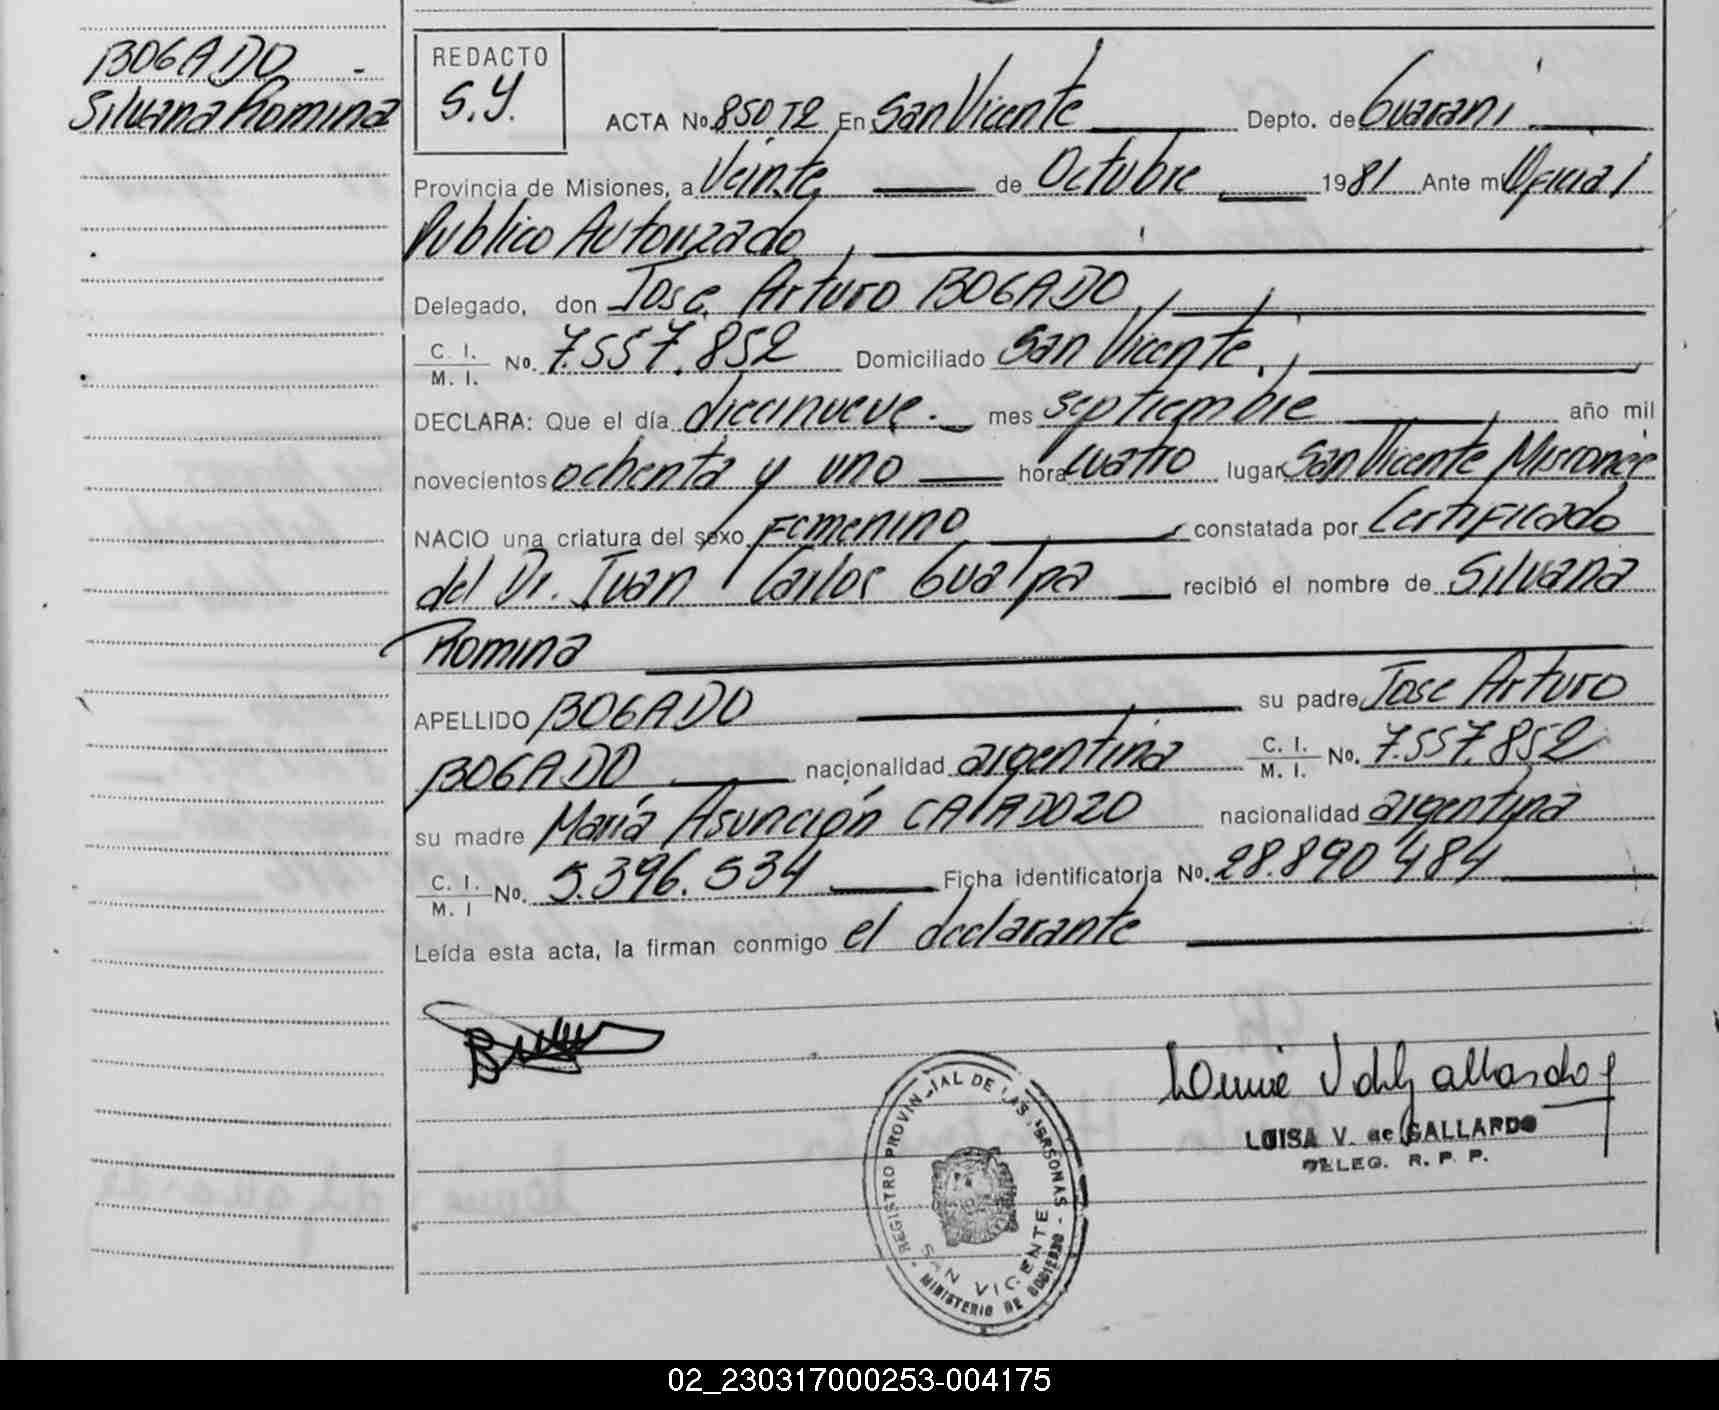 BOGADO
Silvana Romina
REDACTO
S.Y.
ACTA No. 850 T2 En San Vicente Depto. de Guaraní
Provincia de Misiones, a Veinte de Octubre 1981 Ante mi Oficial
Publico Autorizado,
Delegado, don Jose Arturo BOGADO,
C. I.
M. I. No. 7.557.852 Domiciliado San Vicente,
DECLARA: Que el día diecinueve mes septiembre año mil
novecientos ochenta y uno hora cuatro lugar San Vicente Misiones
NACIO una criatura del sexo Femenino constatada por Certificado
del Dr. Juan Carlos Gualpa recibió el nombre de Silvana
Romina
APELLIDO BOGADO su padre Jose Arturo
BOGADO nacionalidad argentina C. I.
M. I. No. 7.557.852
su madre María Asunción nacionalidad argentina
C. I.
M. I No. 5.396.534 Ficha identificatoria No. 28.890484
Leída esta acta, la firman conmigo el declarante
REGISTRO PROVINCIAL DE LAS PERSONAS
SAN VICENTE
MINISTERIO DE GOBIERNO
LUISA V. de GALLARDO
DELEG. R. P. P.
02_230317000253-004175